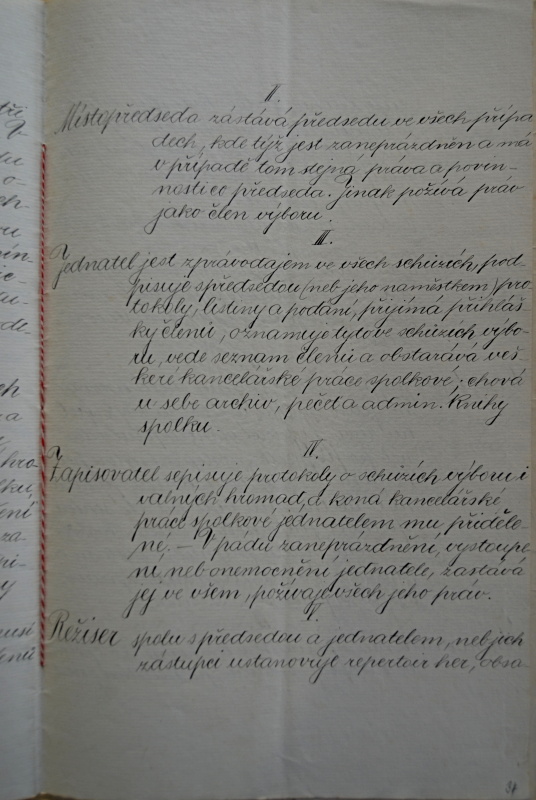 II.
Místopředseda zástává předsedu ve všech přípa
dech, kde týž jest zaneprázdněn a má
v případě tom stejná práva a povin-
nosti co předseda. Jinak požívá práv
jako člen výboru.
III.
Jednatel jest zpravodajem ve všech schůzích, pod-
pisuje s předsedou (neb jeho náměstkem) pro-
tokoly, listiny a podání, přijímá přihláš-
ky členů, oznamuje tytové schůzích výbo-
ru, vede seznam členů a obstarává veš-
keré kancelářské práce spolkové; chová
u sebe archiv, pečeť a admin. knihy
spolku.
IV.
Zapisovatel sepisuje protokoly o schůzích výboru i
valných hromad, a koná kancelářské
práce spolkové jednatelem mu přiděle-
né. – V pádu zaneprázdnění, vystoupe-
ní, neb onemocnění jednatele, zastává
jej ve všem, požívaje všech jeho práv.
V.
Režiser spolu s předsedou a jednatelem, neb jich
zástupci ustanovuje repertoir her, obsa